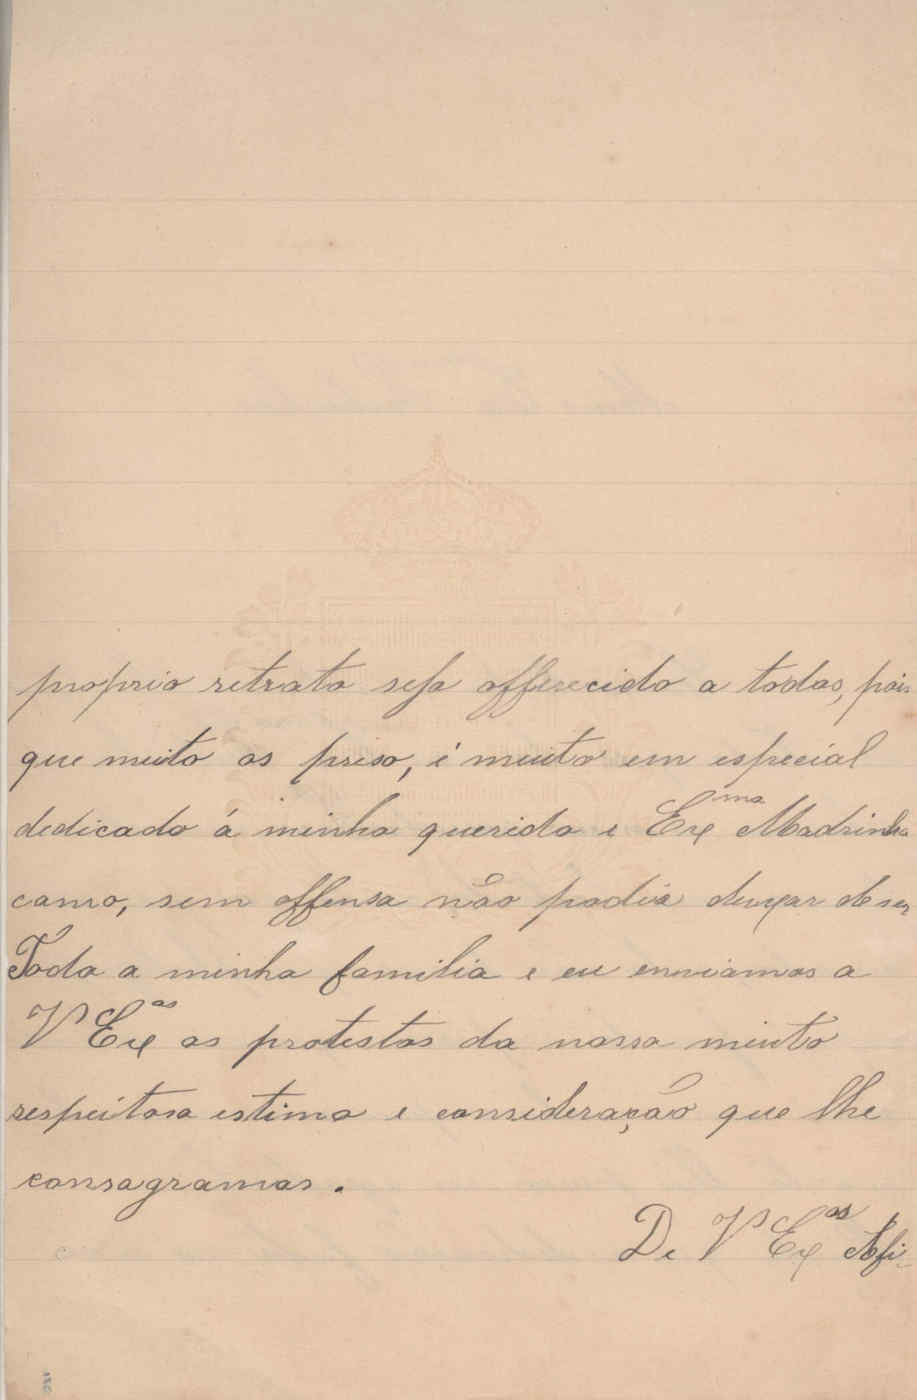 proprio retrato seja offerecido a todos, pois
que muito os preso, é muito em especial
dedicado á minha querida e Ex.ma Madrinha
como, sem offensa não podia deixar de ser
Toda a minha familia e eu enviamos a
V Ex.as os protestos da nossa muito
respeitosa estima e consideração que lhe
consagramos.
De V Ex.as Afi-